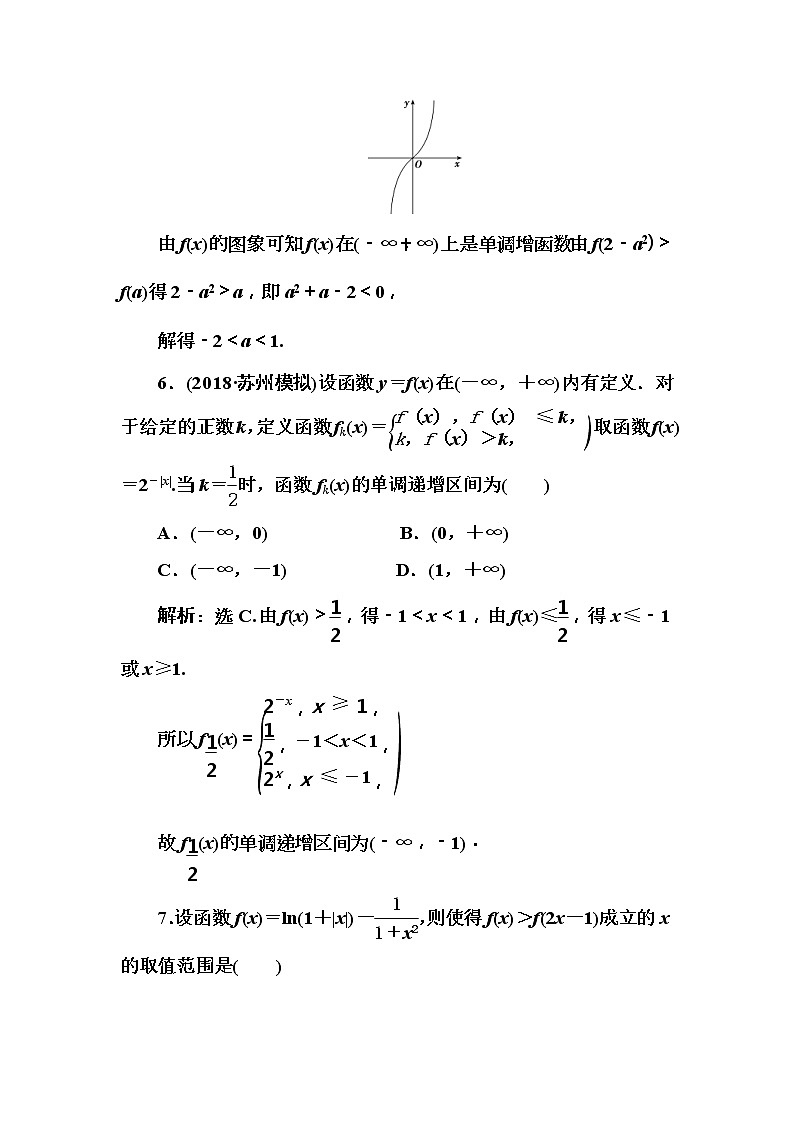 y
O
x
由f(x)的图象可知f(x)在(－∞＋∞)上是单调增函数由f(2－a²)＞
f(a)得2－a²＞a，即a²＋a－2＜0，
解得－2＜a＜1.
6．(2018·苏州模拟)设函数y＝f(x)在(－∞，＋∞)内有定义．对
于给定的正数k,定义函数fₖ(x)＝{f（x）,f（x）≤k,
k，f（x）＞k,)取函数f(x)
＝2^{－|x|}.当k＝1/2时，函数fₖ(x)的单调递增区间为(　　)
A．(－∞，0)　　B．(0，＋∞)
C．(－∞，－1)　　D．(1，＋∞)
解析：选C.由f(x)＞1/2，得－1＜x＜1，由f(x)≤1/2，得x≤－1
或x≥1.
所以f_{1/2}(x)＝{2^{－x}，x≥1，
1/2，－1＜x＜1，
2^x，x≤－1，)
故f_{1/2}(x)的单调递增区间为(－∞，－1)．
7.设函数f(x)＝ln(1＋|x|)－1/(1＋x²),则使得f(x)＞f(2x－1)成立的x
的取值范围是(　　)